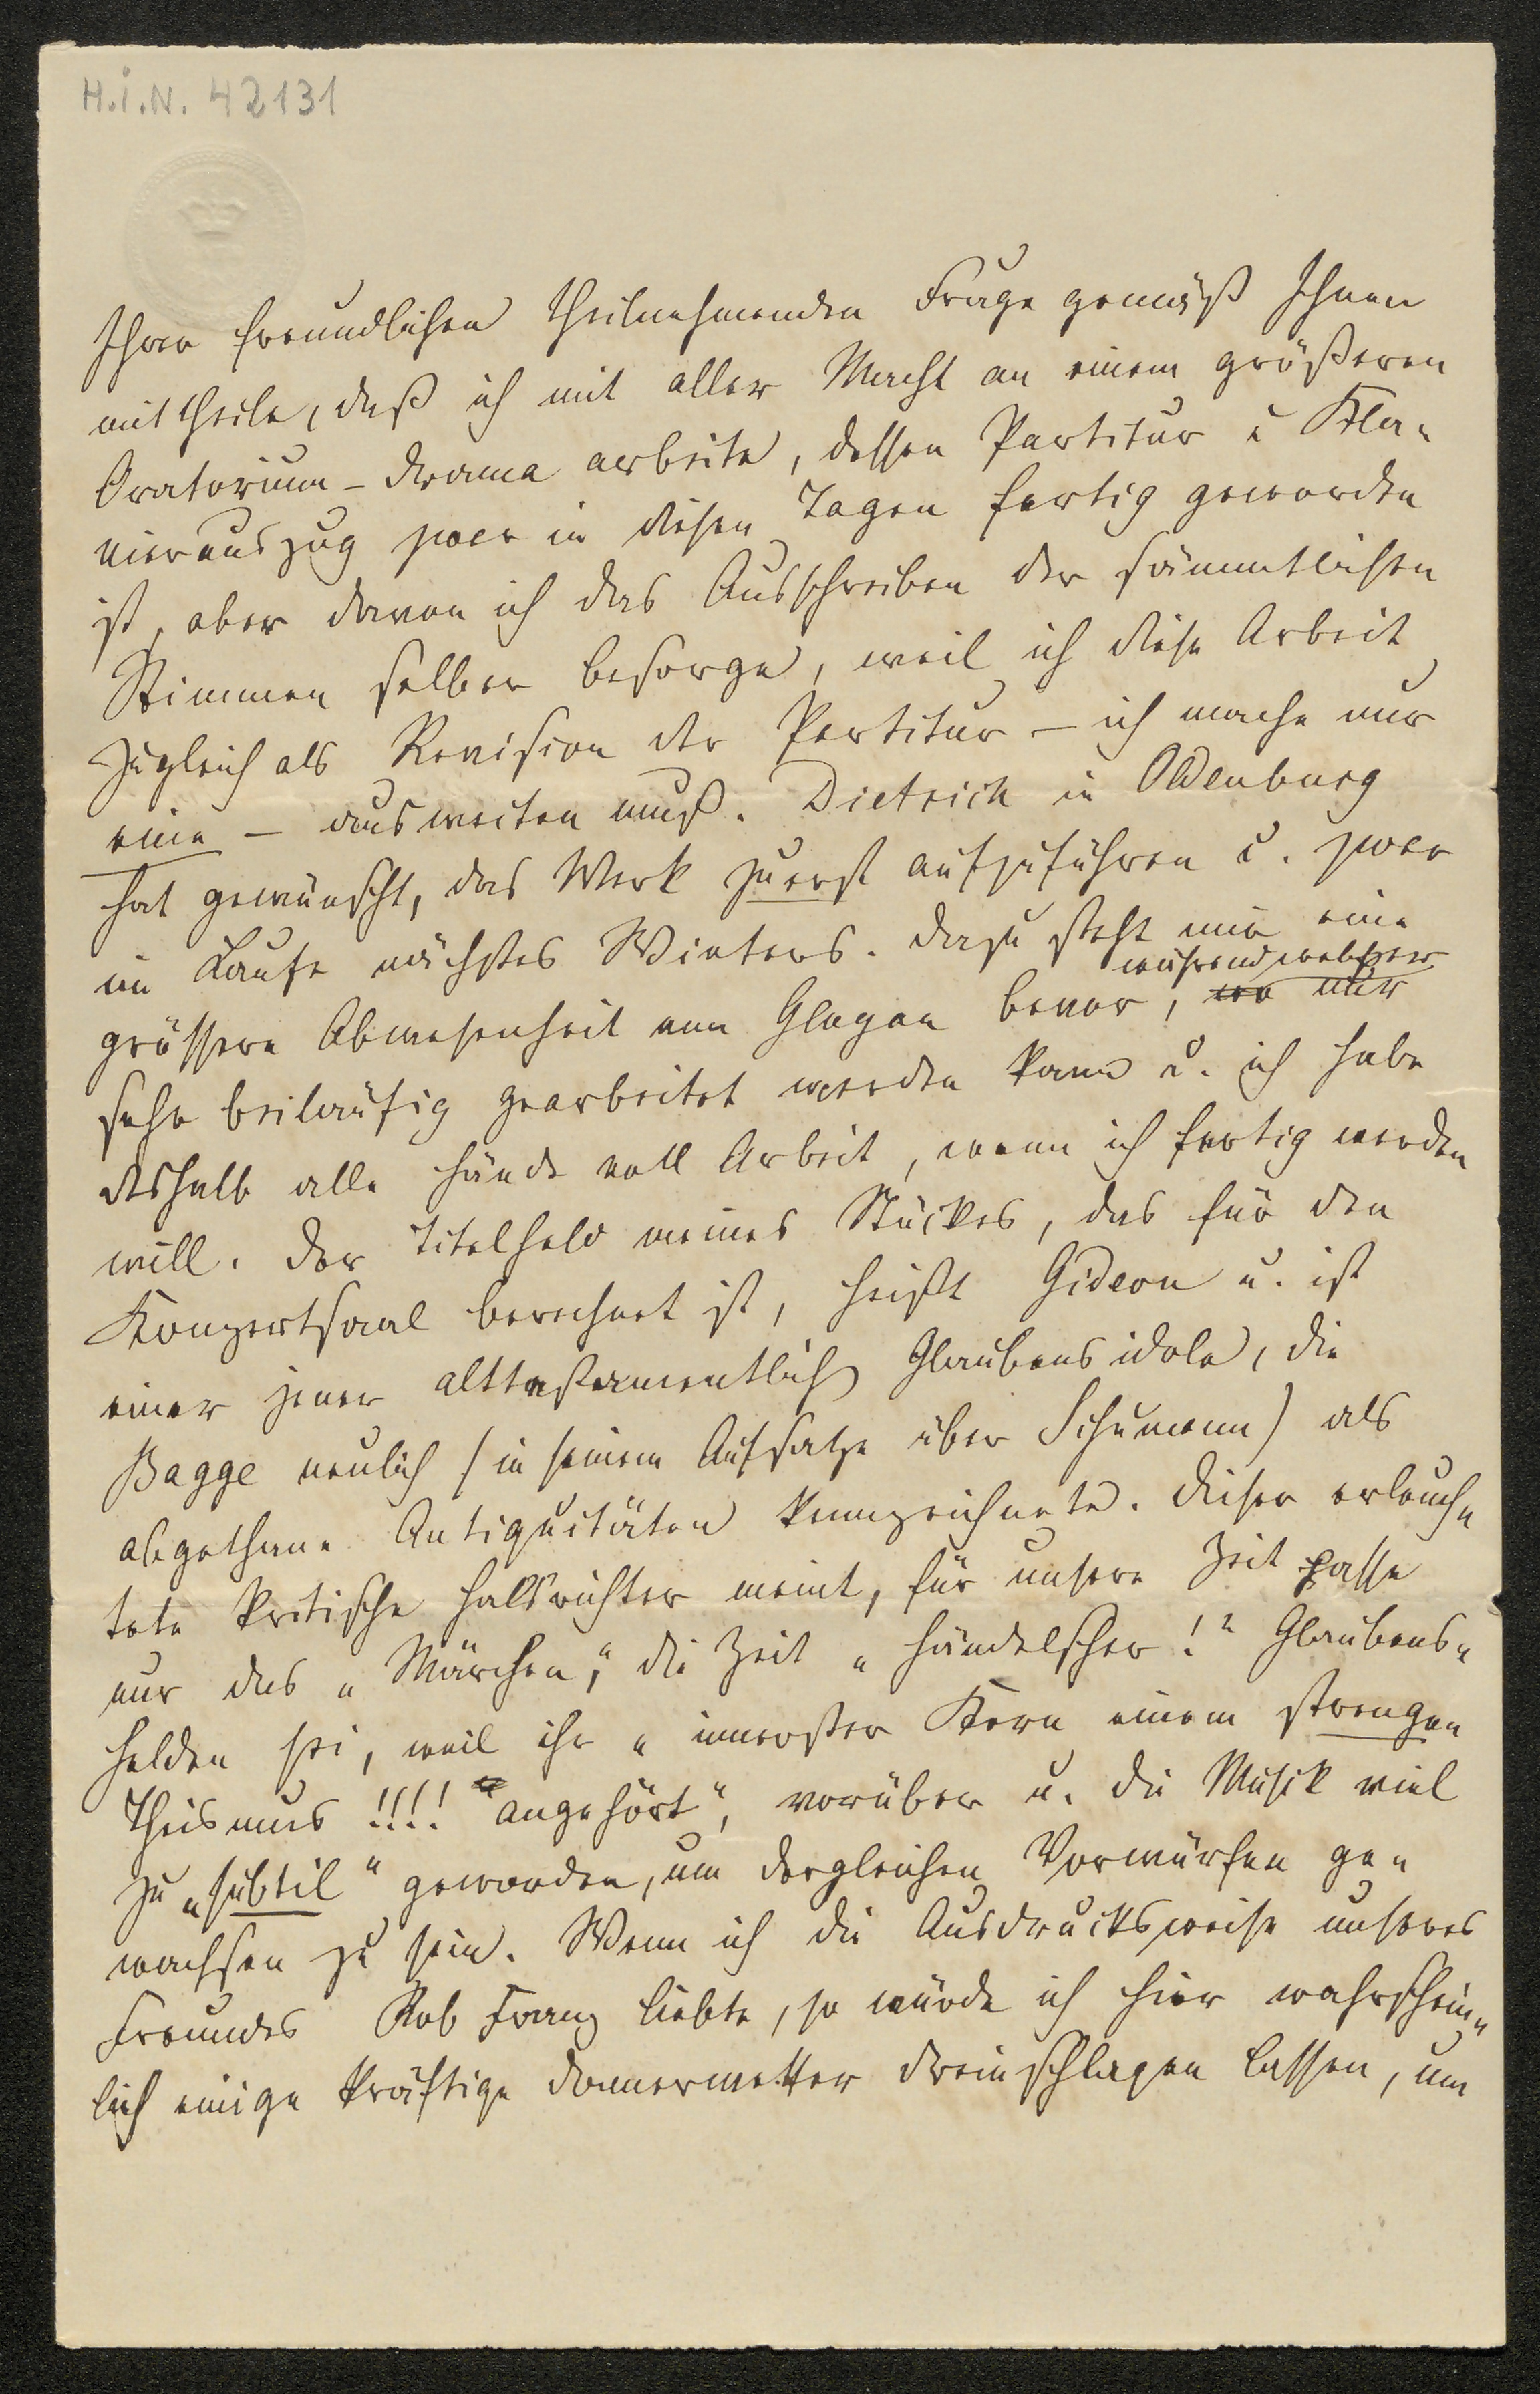 H.I.N. 42131
Ihrer freundlichen theilnehmenden Frage gemäß Ihnen
mittheile, daß ich mit aller Macht an einem größeren
Oratorium-Drama arbeite, dessen Partitur u Kla-
vierauszug zwar in diesen Tagen fertig geworden
ist, aber davon ich das Ausschreiben der sämmtlichen
Stimmen selber besorge, weil ich diese Arbeit
zugleich als Revision der Partitur – ich mache nur
eine – ausweiten muß. Dietrich in Oldenburg
hat gewünscht, das Werk zuerst aufzuführen u. zwar
im Laufe nächstes Winters. Dazu steht mir eine
während welcher
grössere Abwesenheit von Glogau bevor, wo nur
sehr beiläufig gearbeitet werden kann u. ich habe
deshalb alle Hände voll Arbeit, wenn ich fertig werden
will. Der Titelheld meines Stückes, das für den
Konzertsaal berechnet ist, heißt Gideon u. ist
einer jener alttestamentlich Glaubensidole, die
Bagge neulich (in seinem Aufsatze über Schumann) als
abgethane Antiquitäten kennzeichnete. Dieser erleuch-
tete kritische Halsrichter meint, für unsere Zeit passe
nur das „Märchen“, die Zeit „Händelscher!“ Glaubens-
helden sei, weil ihr „innerster Kern einem strengen
Theismus !!!! angehört“, vorüber u. die Musik viel
zu „subtil“ geworden, um dergleichen Vorwürfen ge-
wachsen zu sein. Wenn ich die Ausdrucksweise unseres
Freundes Rob Franz liebte, so würde ich hier wahrschein-
lich einige kräftige Donnerwetter dreinschlagen lassen, um